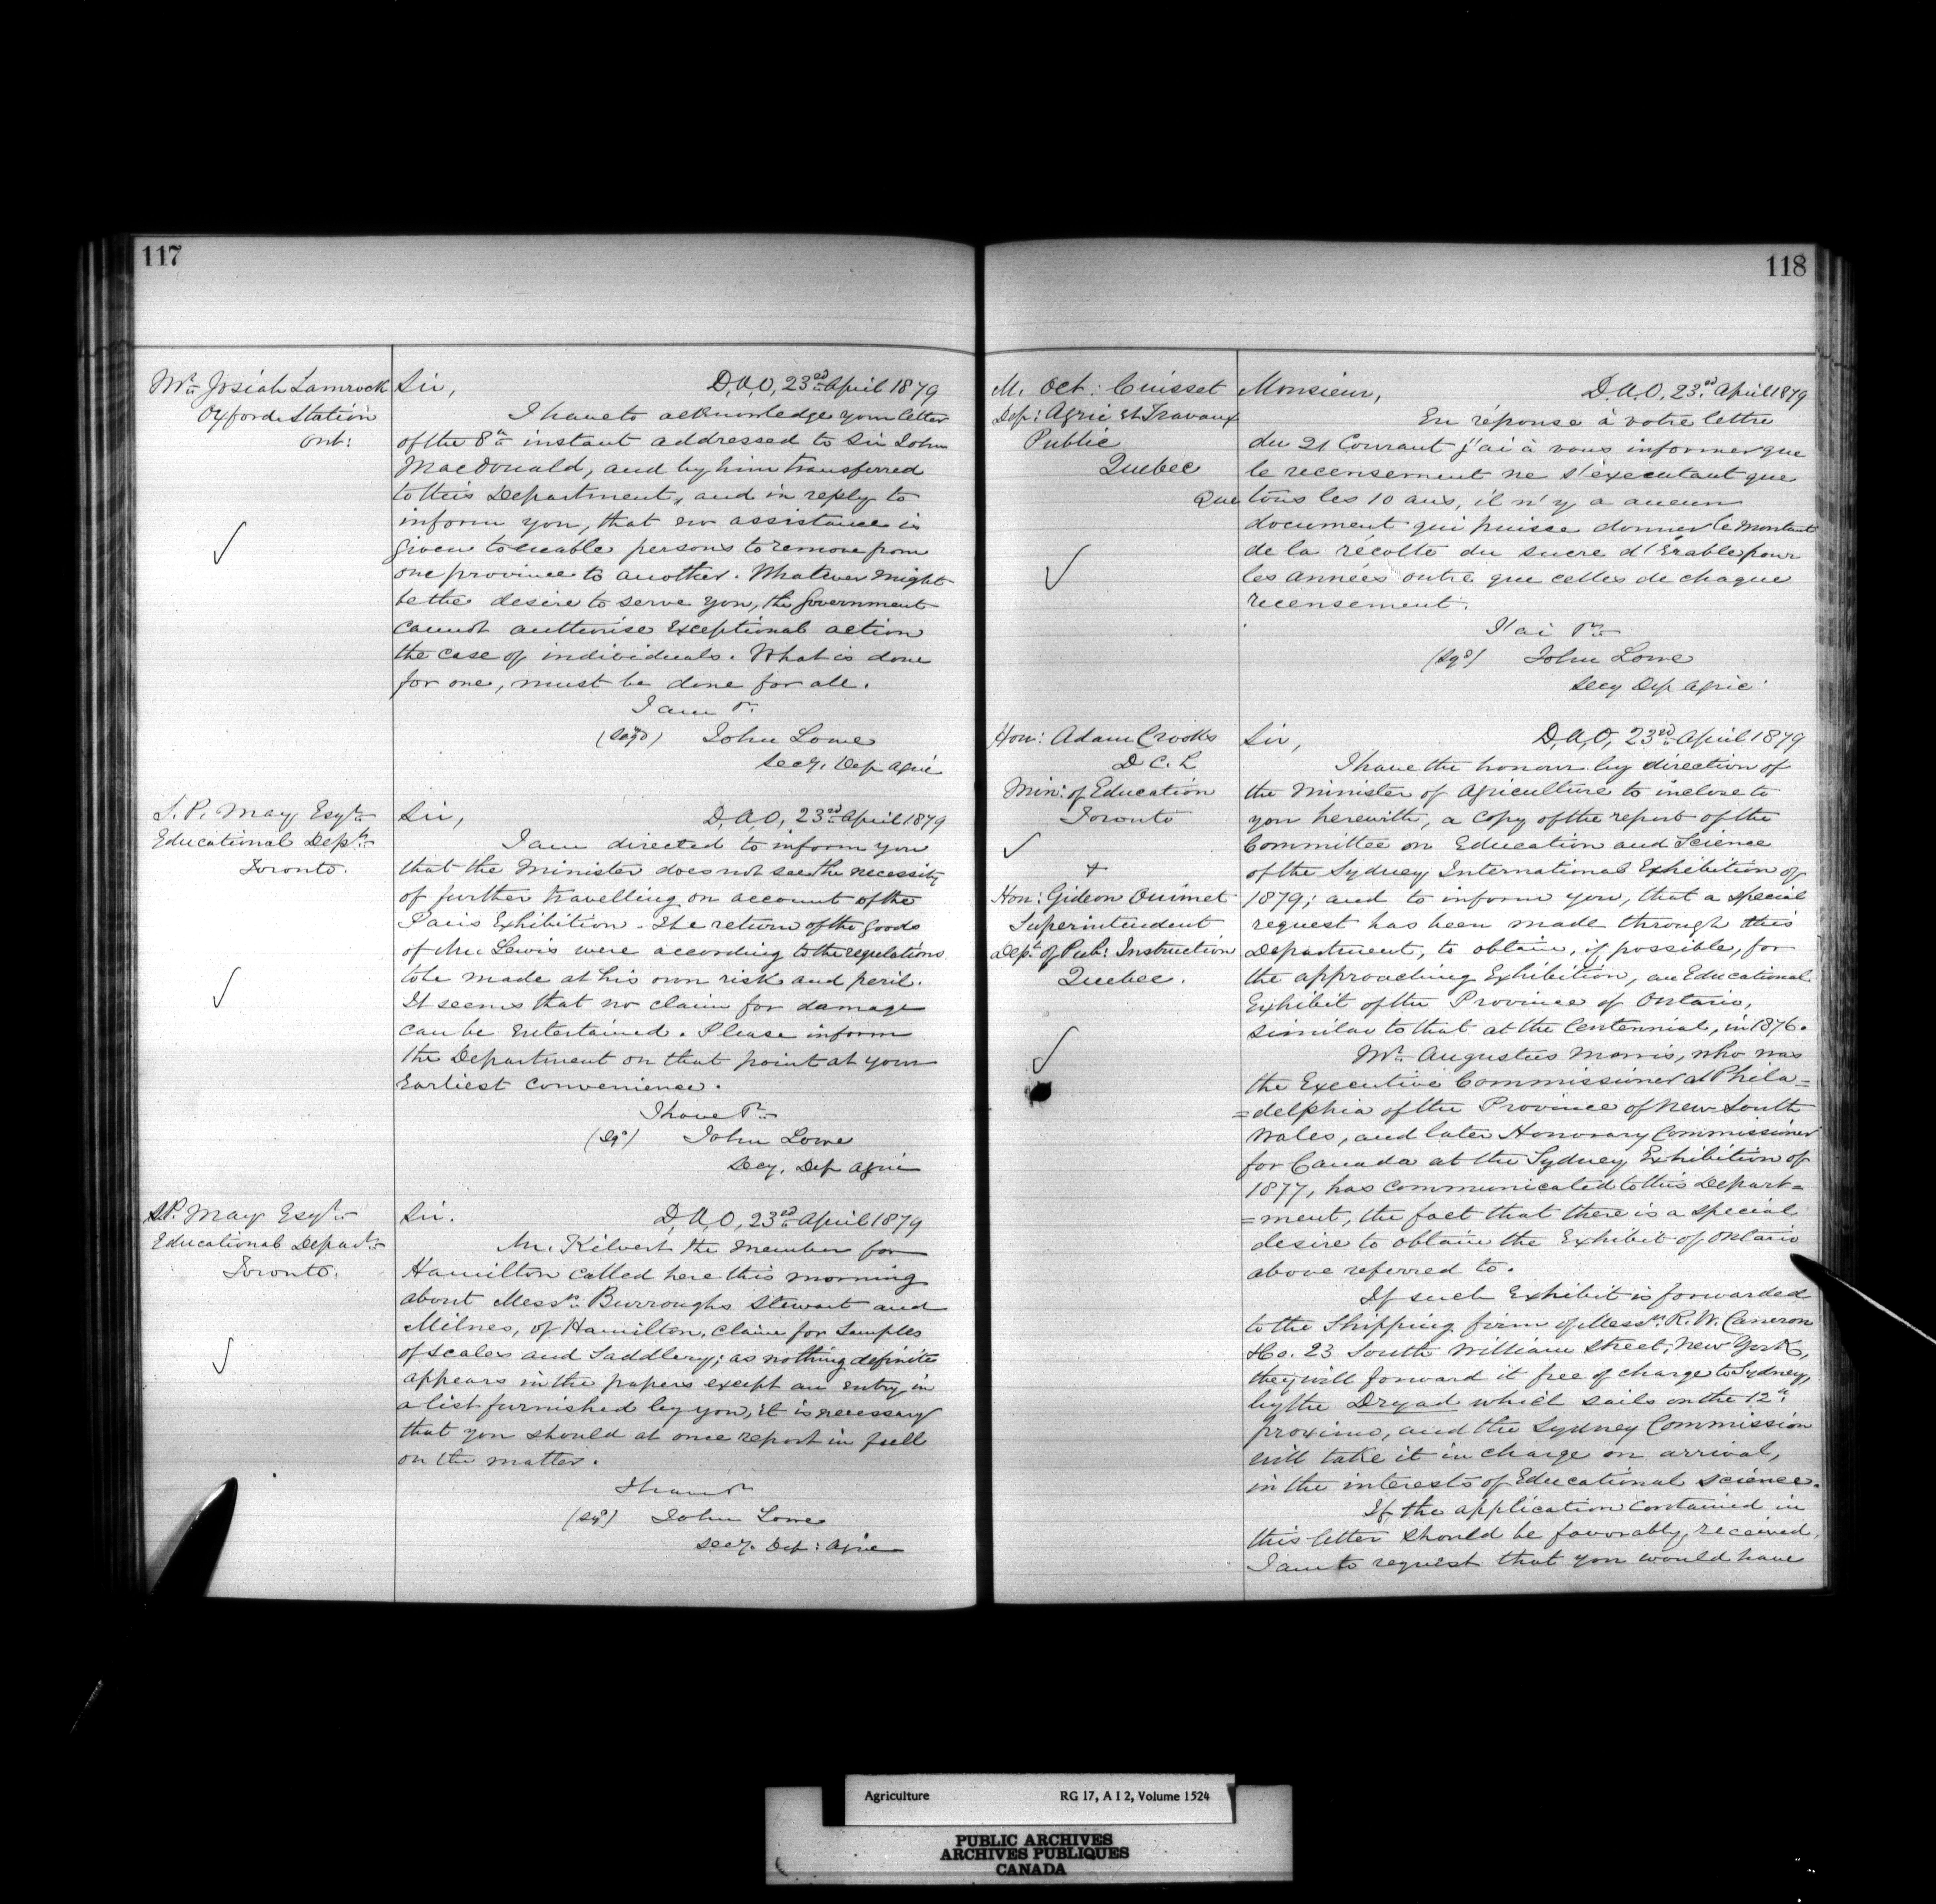 117
Mr. Josiah Lamrock
Oxford Station
Ont:
Sir, D, A, O, 23rd April 1879
I have to acknowledge your letter
of the 8th instant addressed to Sir John
MacDonald, and by him transferred
to this Department, and in reply to
inform you, that no assistance is
given to enable persons to remove from
one province to another. Whatever might
be the desire to serve you, the Government
cannot authorise exceptional action
the case of individuals. What is done
for one, must be done for all.
I am &c
(Sigd) John Lowe
Secy. Dep Agric
S. P. May Esqre
Educational Dept
Toronto.
Sir, D, A, O, 23rd April 1879
I am directed to inform you
that the Minister does not see the necessity
of further travelling on account of the
Paris Exhibition. The return of the goods
of Mr. Lewis were according to the regulations
to be made at his own risk and peril.
It seems that no claim for damage
can be entertained. Please inform
the Department on that point at your
Earliest convenience.
I have &c
(Sgd) John Lowe
Secy, Dep Agric
S.P. May Esqr
Educational Depart
Toronto.
Sir. D, A, O, 23rd April 1879
Mr. Kilvert the Member for
Hamilton called here this morning
about Messrs. Burroughs Stewart and
Milnes, of Hamilton, claim for samples
of scales and Saddlery; as nothing definite
appears in the papers except an entry in
a list furnished by you, it is necessary
that you should at once report in full
on the matter.
I have &c
(Sgd) John Lowe
Secy. Dep: Agric
118
M. Oct: Cuisset
Dep: Agric et Travaux
Public
Quebec
Monsieur, D, A, O, 23rd April 1879
En réponse à votre lettre
du 21 Courant j'ai à vous informer que
le recensement ne s'executant que
Que tous les 10 ans, il n'y a aucun
document qui puisse donner le montant
de la récolte du sucre d'Erable pour
les années outre que celles de chaque
recensement.
J'ai &c
(Sgd) John Lowe
Secy Dep Agric
Hon: Adam Crooks
D C. L
Min: of Education
Toronto
&
Hon: Gideon Ouimet
Superintendent
Dept of Pub: Instruction
Quebec.
Sir, D, A, O, 23rd April 1879
I have the honour by direction of
the Minister of Agriculture to inclose to
you herewith, a copy of the report of the
Committee on Education and Science
of the Sydney International Exhibition of
1879; and to inform you, that a special
request has been made through this
Department, to obtain, if possible, for
the approaching Exhibition, an Educational
Exhibit of the Province of Ontario,
similar to that at the Centennial, in 1876.
Mr. Augustus Morris, who was
the Executive Commissioner at Phila=
=delphia of the Province of New South
Wales, and later Honorary Commissioner
for Canada at the Sydney Exhibition of
1877, has communicated to this Depart=
=ment, the fact that there is a special
desire to obtain the Exhibit of Ontario
above referred to.
If such Exhibit is forwarded
to the Shipping firm of Messrs. R. W. Cameron
&Co. 23 South William Street, New York,
they will forward it free of charge to Sydney,
by the Dryad which sails on the 12th
proximo, and the Sydney Commission
will take it in charge on arrival,
in the interests of Educational science.
If the application contained in
this letter should be favorably received,
I am to request that you would have
Agriculture RG 17, A I 2, Volume 1524
PUBLIC ARCHIVES
ARCHIVES PUBLIQUES
CANADA